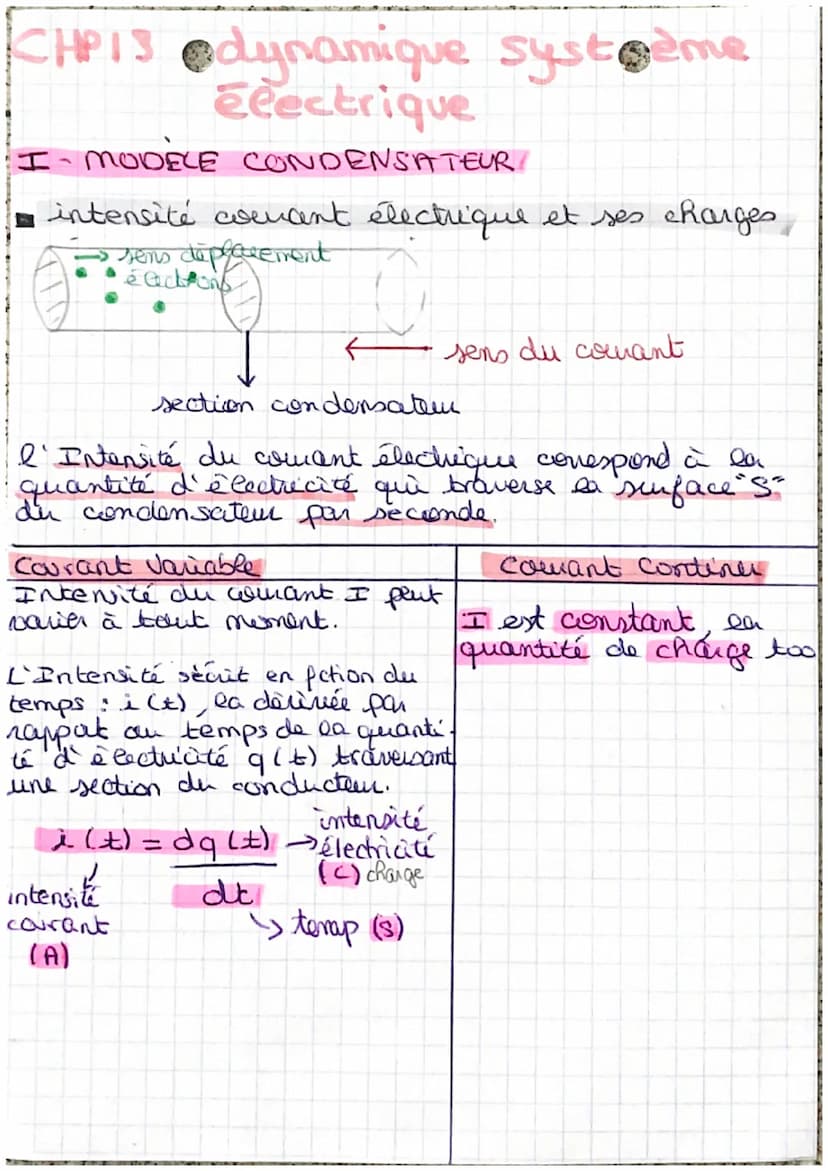 CHP13 dynamique système
électrique
I - MODÈLE CONDENSATEUR
intensité courant électrique et ses charges
→ sens déplacement
électrons
← sens du courant
section condensateur
l'Intensité du courant électrique correspond à la
quantité d'électricité qui traverse la surface "S"
du condensateur par seconde.
Courant Variable
Intensité du courant I peut
varier à tout moment.
L'Intensité s'écrit en fction du
temps : i(t), la dérivée par
rapport au temps de la quanti-
té d'électricité q(t) traversant
une section du conducteur.
i(t) = dq(t) → intensité
électricité
(C) charge
dt
↘ temp (s)
intensité
courant
(A)
Courant Continu
I est constant, la
quantité de charge too